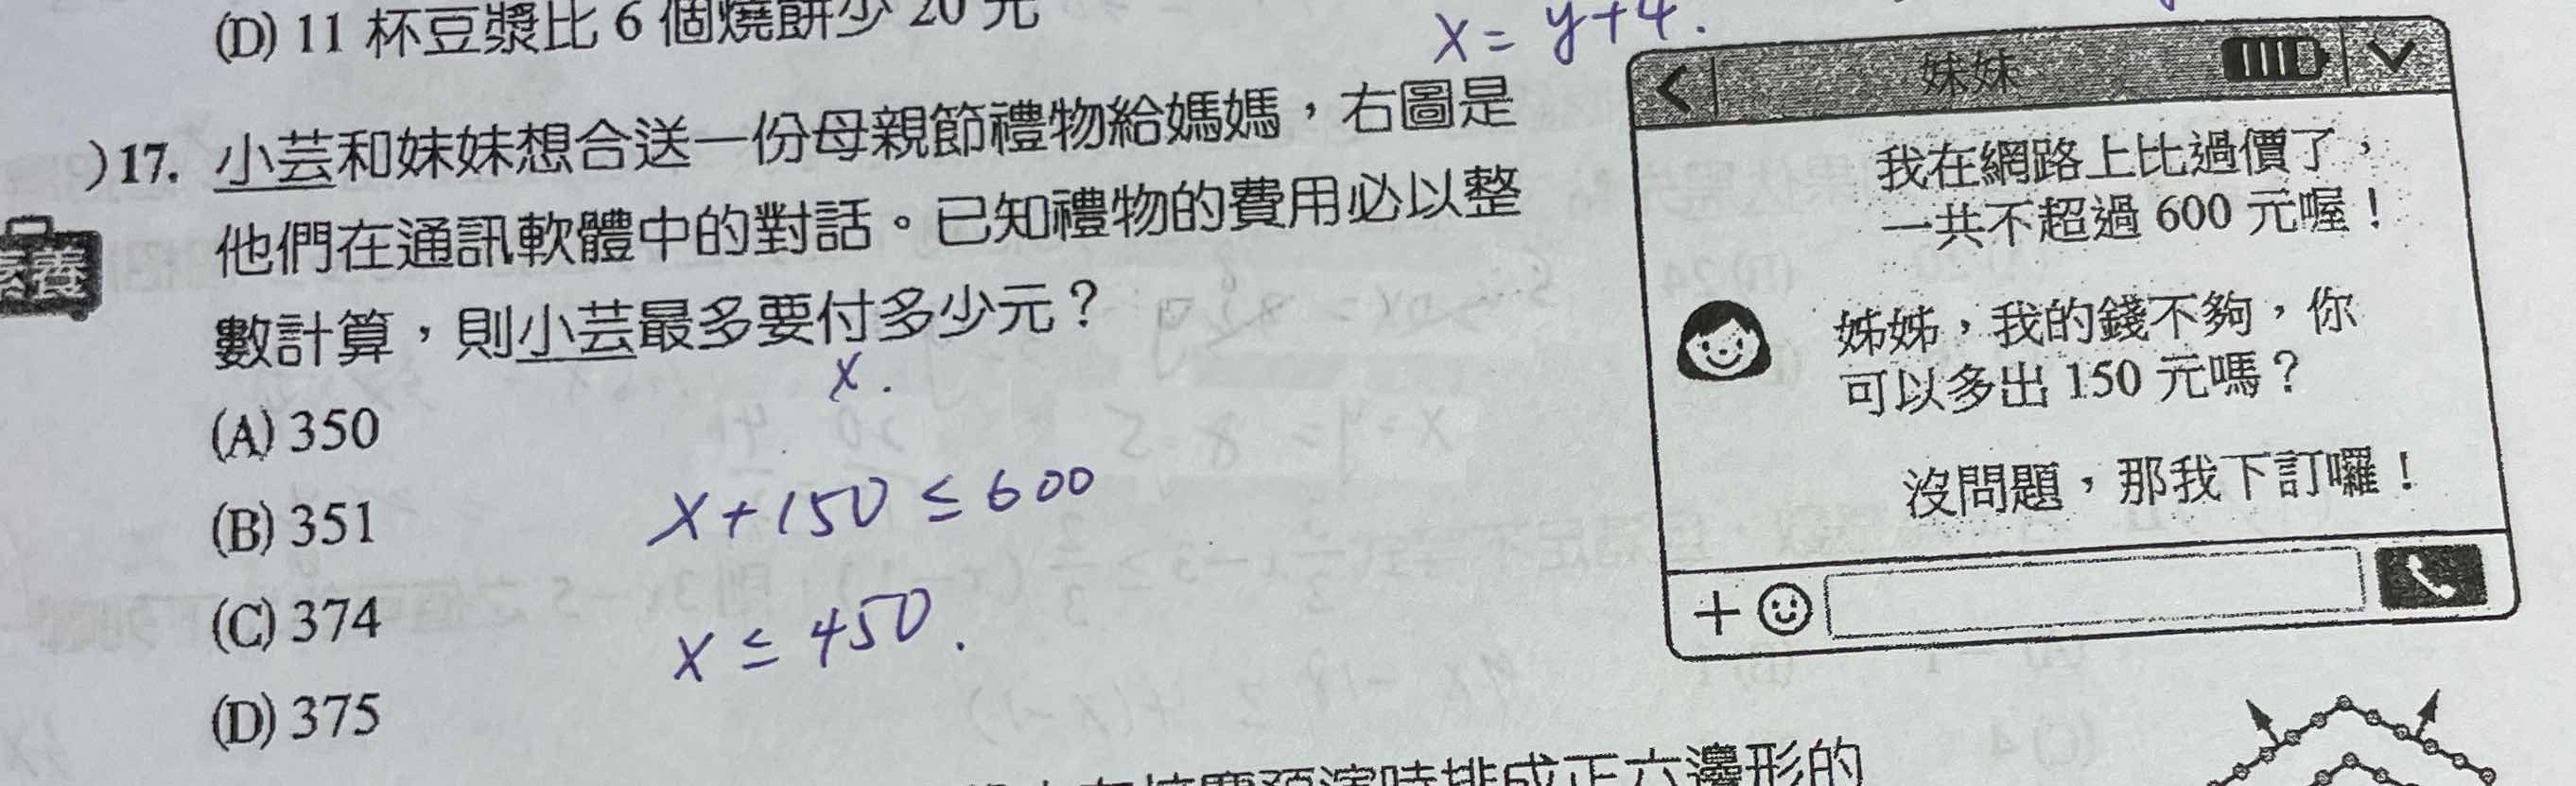 (D) 11 杯豆漿比 6 個燒餅少 20 元
x = y+4.
)17. 小芸和妹妹想合送一份母親節禮物給媽媽，右圖是
他們在通訊軟體中的對話。已知禮物的費用必以整
數計算，則小芸最多要付多少元？
x.
(A) 350
(B) 351
(C) 374
(D) 375
x+150 ≤ 600
x ≤ 450.
素養
妹妹
我在網路上比過價了，
一共不超過 600 元喔！
姊姊，我的錢不夠，你
可以多出 150 元嗎？
沒問題，那我下訂囉！
排成正六邊形的